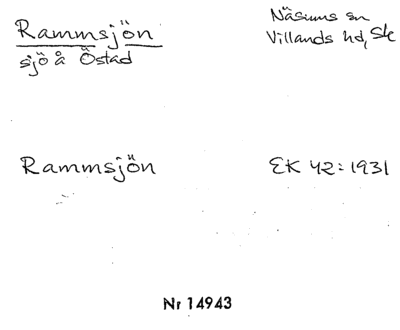 Rammsjön
sjö å Östad
Näsums sn
Villands hd, Sk
Rammsjön
EK 42:1931
Nr 14943